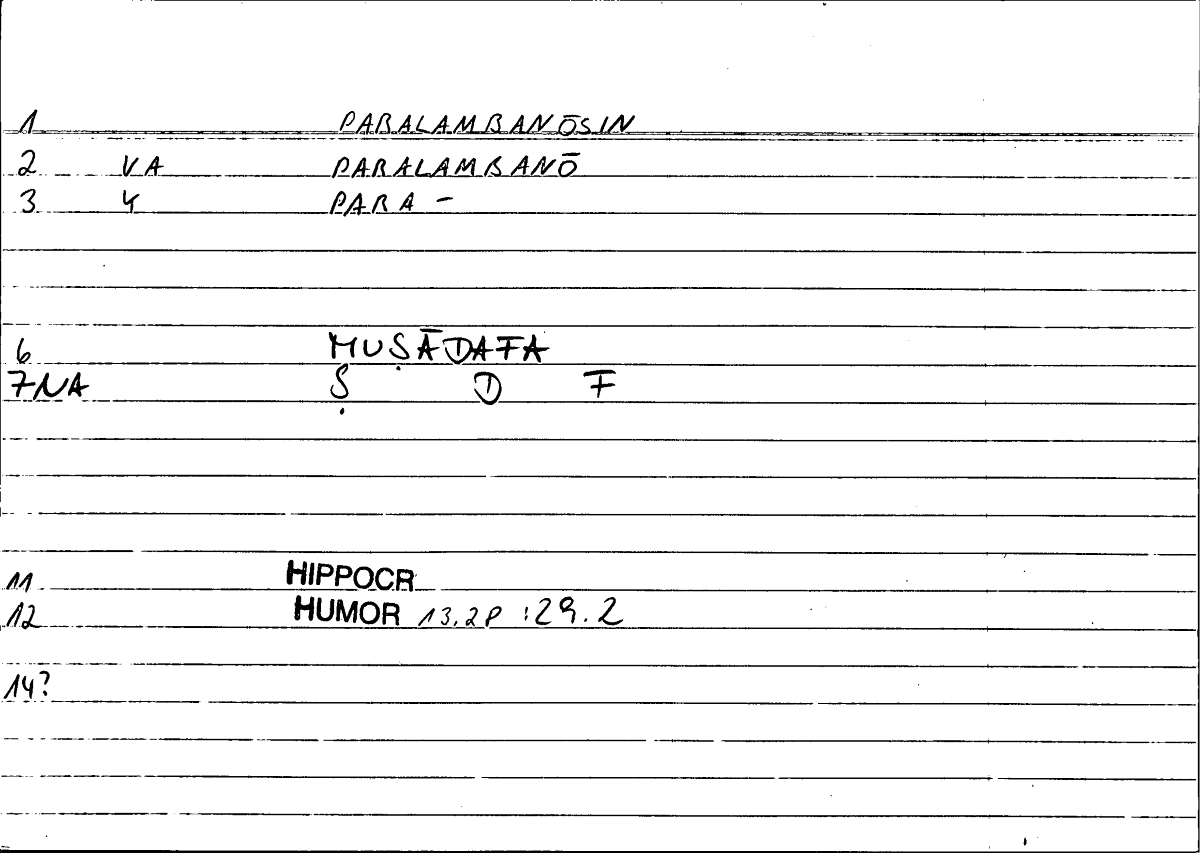 1 PARALAMBANŌSIN
2 VA PARALAMBANŌ
3 4 PARA -
6 MUṢĀDAFA
7NA Ṣ D F
11 HIPPOCR
12 HUMOR 13.2P :29.2
14?